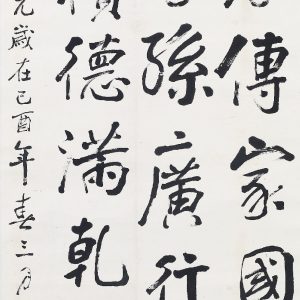 傳家國
孫廣行
積德滿乾
元歲在己酉年春三月